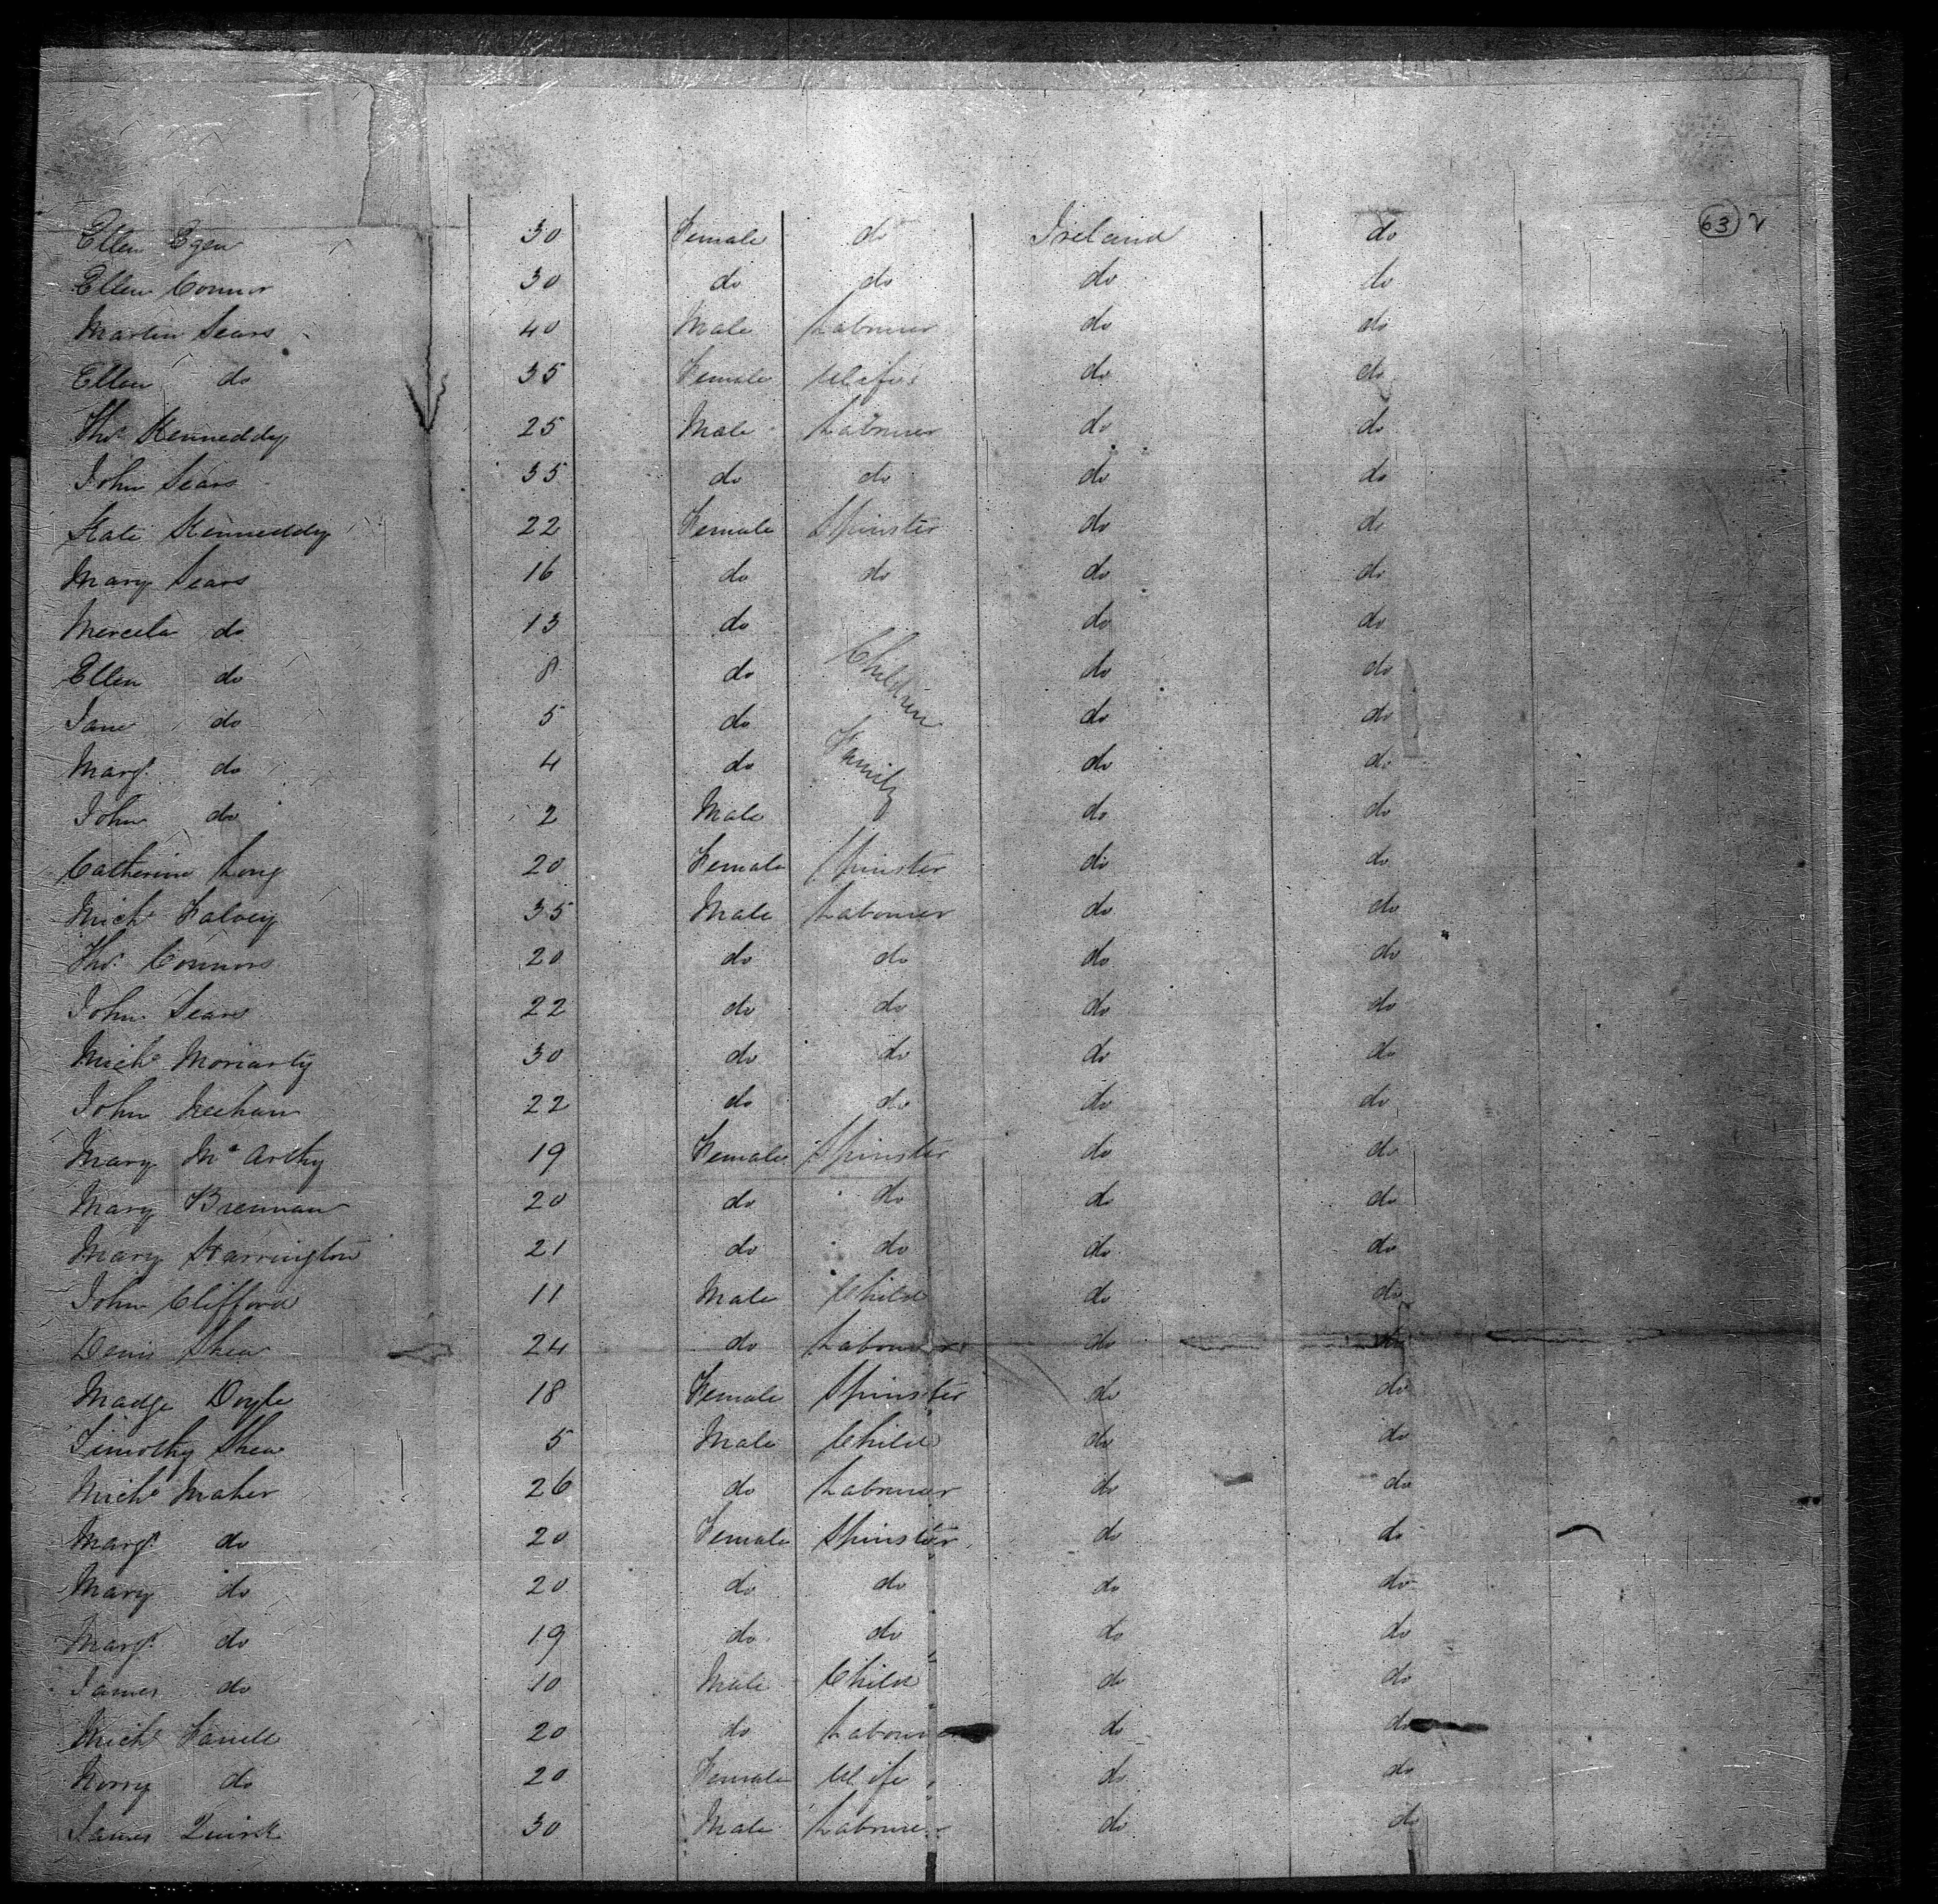 63 v
Ellen Egen 30 Female do Ireland do
Ellen Connor 30 do do do do
Martin Sears 40 Male Labourer do do
Ellen do 35 Female Wife do do
Thos. Kenneddy 25 Male Labourer do do
John Sears 35 do do do do
Kate Kenneddy 22 Female Spinster do do
Mary Sears 16 do do do do
Mercela do 13 do do do
Ellen do 8 do Children do do
Jane do 5 do do do
Margt. do 4 do Family do do
John do 2 Male do do
Catherine Long 20 Female Spinster do do
Michl Falvey 35 Male Labourer do do
Thos. Connors 20 do do do do
John Sears 22 do do do do
Michl Moriarty 30 do do do do
John Meehan 22 do do do do
Mary McArthy 19 Female Spinster do do
Mary Brennan 20 do do do do
Mary Harrington 21 do do do do
John Clifford 11 Male Child do do
Denis Shea 24 do Labourer do do
Madge Doyle 18 Female Spinster do do
Timothy Shea 5 Male Child do do
Michl Maher 26 do Labourer do do
Margt do 20 Female Spinster do do
Mary do 20 do do do do
Margt. do 19 do do do do
James do 10 Male Child do do
Michl 20 do Labourer do do
Norry do 20 Female Wife do do
James Quirk 30 Male Labourer do do